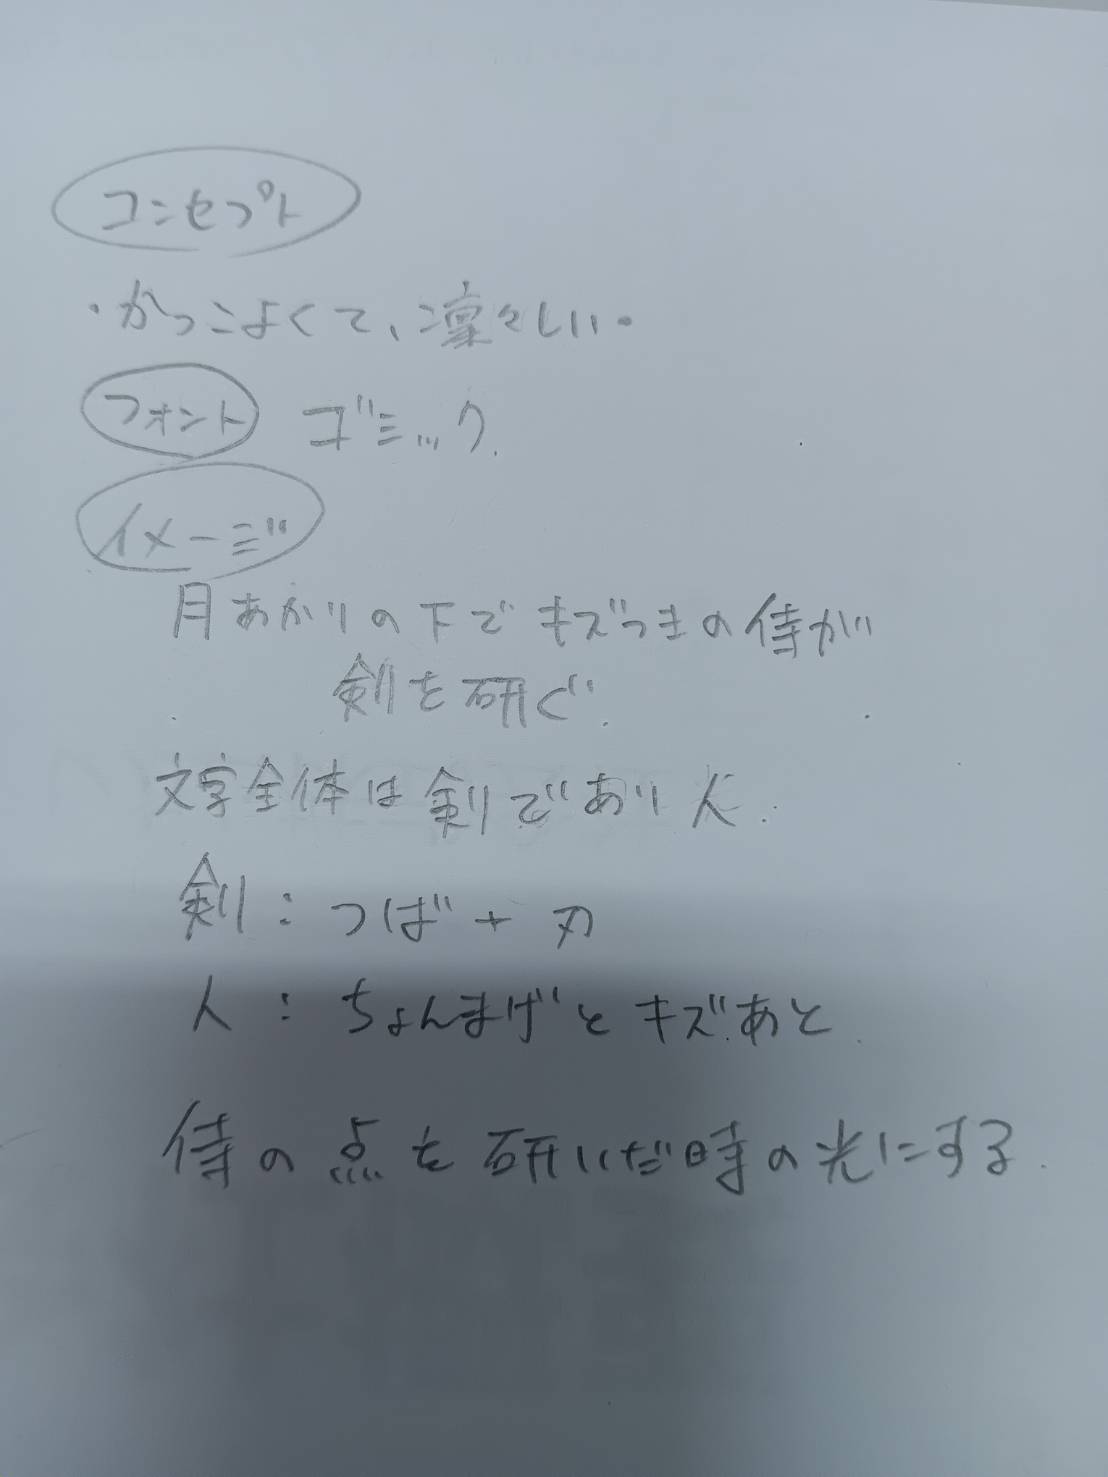 コンセプト
・かっこよくて、凛々しい。
フォント ゴミック.
イメージ
月あかりの下でキズつきの侍が
剣を研ぐ.
文字全体は剣であり人.
剣：つば+刃
人：ちょんまげとキズあと.
侍の点を研いだ時の光にする.